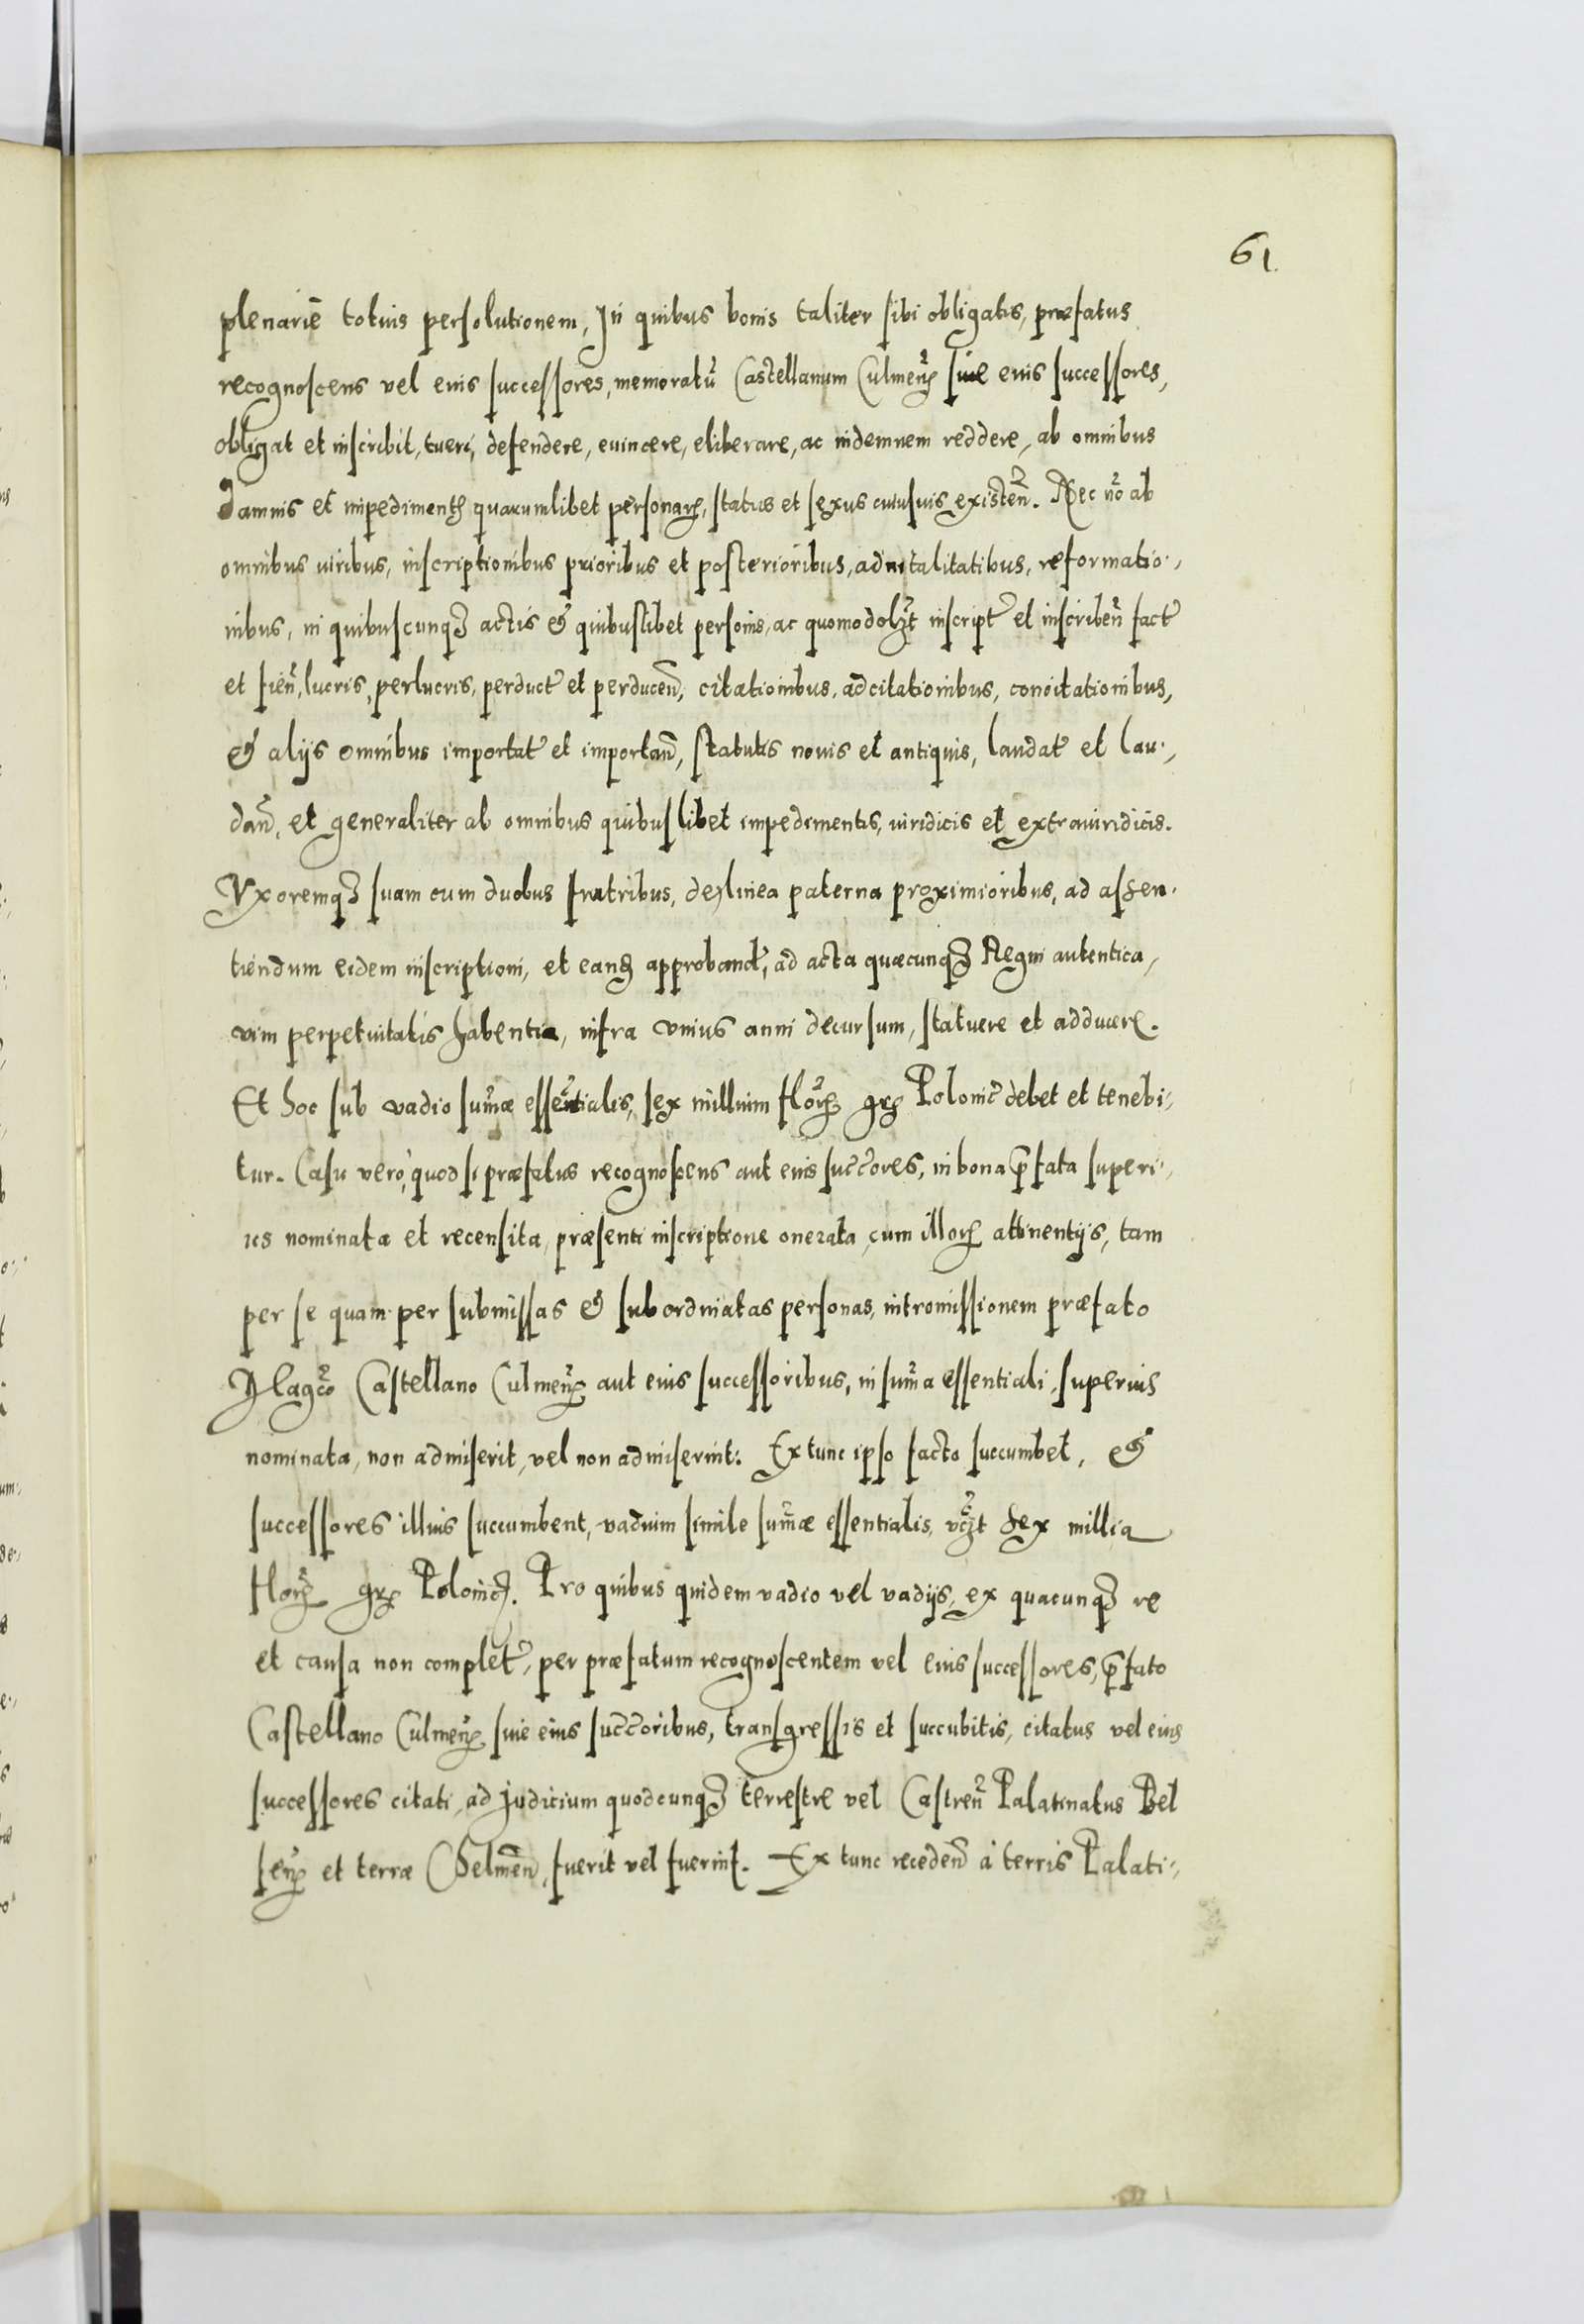 61.
plenariē totius persolutionem, In quibus bonis taliter sibi obligatis, præfatus
recognoscens vel eius successores, memoratū Castellanum Culmenˢ siue eius successores,
obligat et inscribit, tueri, defendere, euincere, eliberare, ac indemnem reddere, ab omnibus
damnis et impedimentꝭ quarumlibet personarꝭ, status et sexus cuiusuis existeñ. Nec ño ab
omnibus iuribus, inscriptionibus prioribus et posterioribus, aduitalitatibus, reformatio-,
nibus, in quibuscunqꝫ actis & quibuslibet personis, ac quomodolꝫt inscript et inscribeñ fact
et fieñ, lucris, perlucris, perduct et perduceñ, citationibus, adcitationibus, concitationibus,
& alijs omnibus importat et importañ, statutis nouis et antiquis, laudat et lau-,
dañ, et generaliter ab omnibus quibuslibet impedimentis, iuridicis et extraiuridicis.
Vxoremqꝫ suam cum duobus fratribus, de linea paterna proximioribus, ad assen-
tiendum eidem inscriptioni, et eandꝫ approband, ad acta quæcunqꝫ Regni autentica,
vim perpetuitatis habentia, infra vnius anni decursum, statuere et adducere.
Et hoc sub vadio sum̃æ essentialis, sex millium florꝭ grꝭ Polonic debet et tenebi-,
tur. Casu vero, quod si præfatus recognoscens aut eius succ̃ores, in bona p̱fata superi-,
us nominata et recensita, præsenti inscriptione onerata, cum illorꝭ attinentijs, tam
per se quam per submissas & subordinatas personas, intromissionem præfato
Magc̃o Castellano Culmenˢ aut eius successoribus, in sum̃a essentiali, superius
nominata, non admiserit, vel non admiserint: Extunc ipso facto succumbet, &
successores illius succumbent, vadium simile sum̃æ essentialis, vꝫt sex millia
florꝭ grꝭ Polonicꝭ. Pro quibus quidem vadio vel vadijs, ex quacunqꝫ re
et causa non complet, per præfatum recognoscentem vel eius successores, p̱fato
Castellano Culmenˢ siue eius succ̃oribus, transgressis et succubitis, citatus vel eius
successores citati, ad judicium quodcunqꝫ terrestre vel Castreñ Palatinatus Bel
senˢ et terræ Chelmeñ, fuerit vel fuerint. Ex tunc recedeñ à terris Palati-,